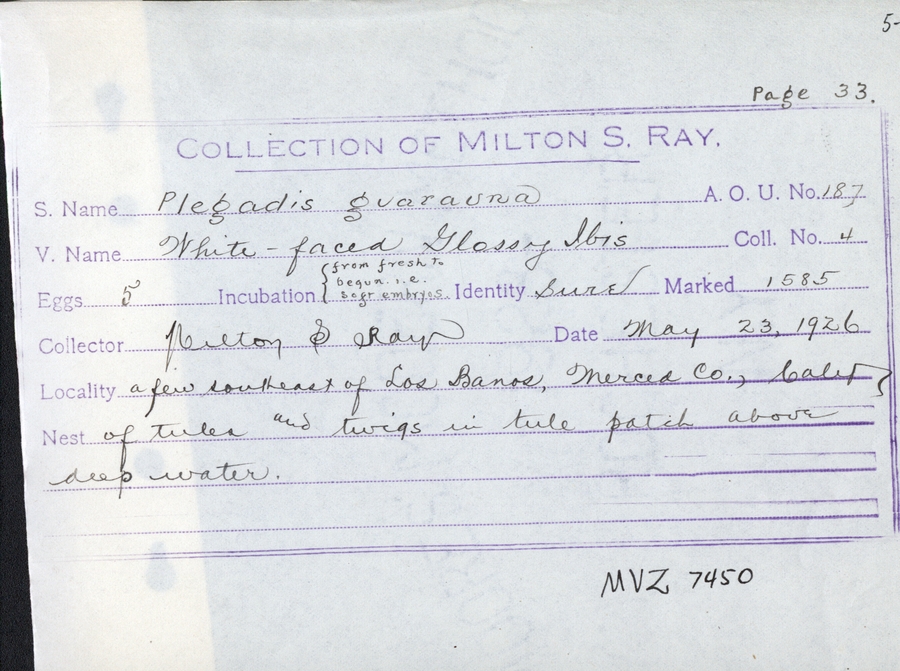 5-
Page 33.
COLLECTION OF MILTON S. RAY.
S. Name Plegadis guarauna A. O. U. No. 187
V. Name White-faced Glossy Ibis Coll. No. 4
Eggs 5 Incubation {from fresh to begun. i.e. segr embryos. Identity Sure Marked 1585
Collector Milton S Ray Date May 23, 1926
Locality a few southeast of Los Banos, Merced Co., Calif
Nest of tules and twigs in tule patch above
deep water.
MVZ 7450